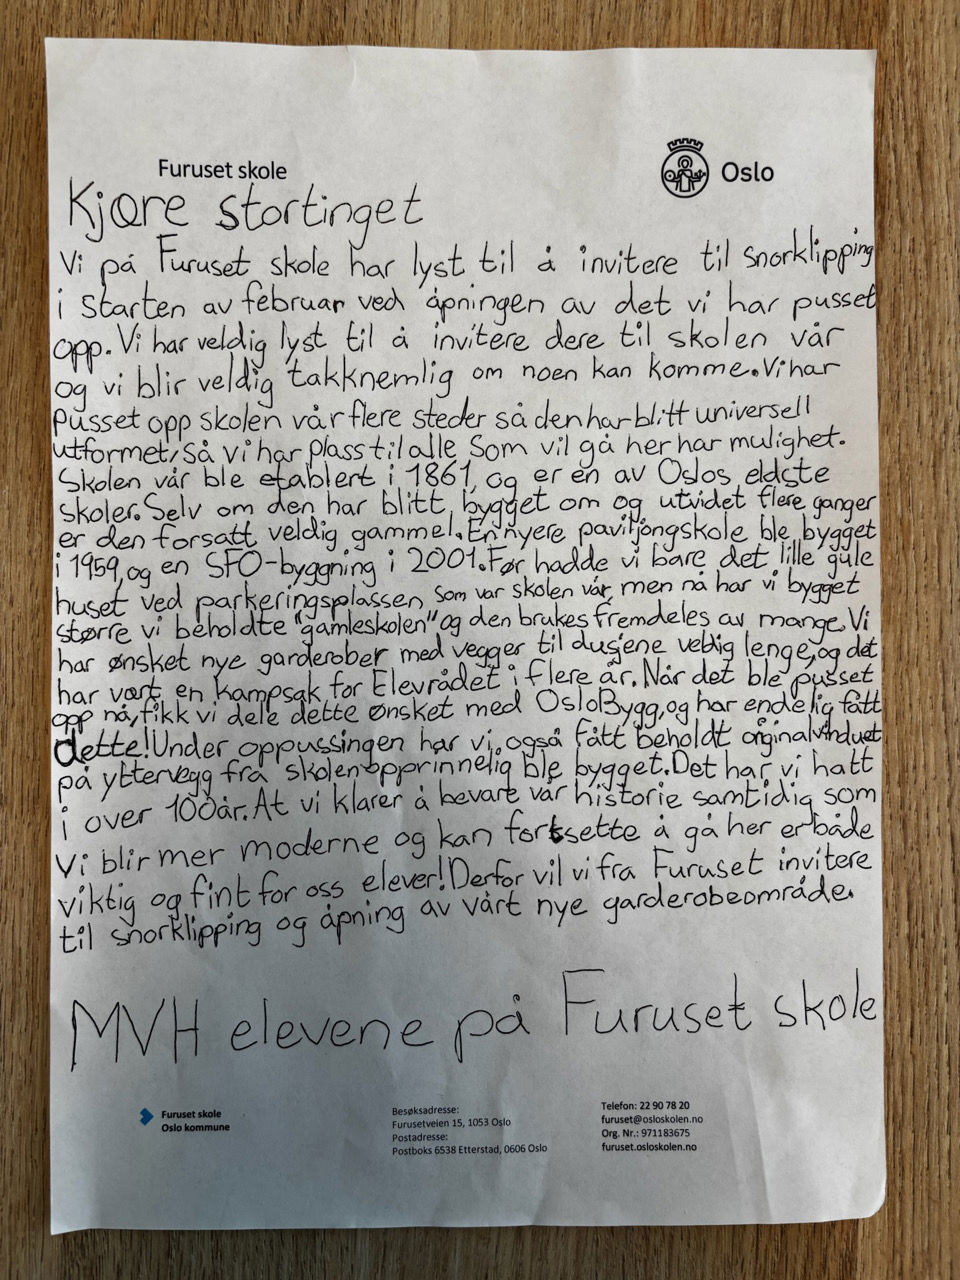 Furuset skole
Oslo
Kjære stortinget
Vi på Furuset skole har lyst til å invitere til snorklipping
i starten av februar ved åpningen av det vi har pusset
opp. Vi har veldig lyst til å invitere dere til skolen vår
og vi blir veldig takknemlig om noen kan komme. Vi har
pusset opp skolen vår flere steder så den har blitt universell
utformet, så vi har plass til alle som vil gå her har mulighet.
Skolen vår ble etablert i 1861, og er en av Oslos eldste
skoler. Selv om den har blitt bygget om og utvidet flere ganger
er den forsatt veldig gammel. En nyere paviljongskole ble bygget
i 1959, og en SFO-byggning i 2001. Før hadde vi bare det lille gule
huset ved parkeringsplassen som var skolen vår, men nå har vi bygget
større vi beholdte "gamleskolen" og den brukes fremdeles av mange. Vi
har ønsket nye garderober med vegger til dusjene veldig lenge, og det
har vært en kampsak for Elevrådet i flere år. Når det ble pusset
opp nå, fikk vi dele dette ønsket med OsloBygg, og har endelig fått
dette! Under oppussingen har vi også fått beholdt orginalvinduet
på yttervegg fra skolen opprinnelig ble bygget. Det har vi hatt
i over 100 år. At vi klarer å bevare vår historie samtidig som
vi blir mer moderne og kan fortsette å gå her er både
viktig og fint for oss elever! Derfor vil vi fra Furuset invitere
til snorklipping og åpning av vårt nye garderobeområde.
MVH elevene på Furuset skole
Furuset skole
Oslo kommune
Besøksadresse:
Furusetveien 15, 1053 Oslo
Postadresse:
Postboks 6538 Etterstad, 0606 Oslo
Telefon: 22 90 78 20
furuset@osloskolen.no
Org. Nr.: 971183675
furuset.osloskolen.no